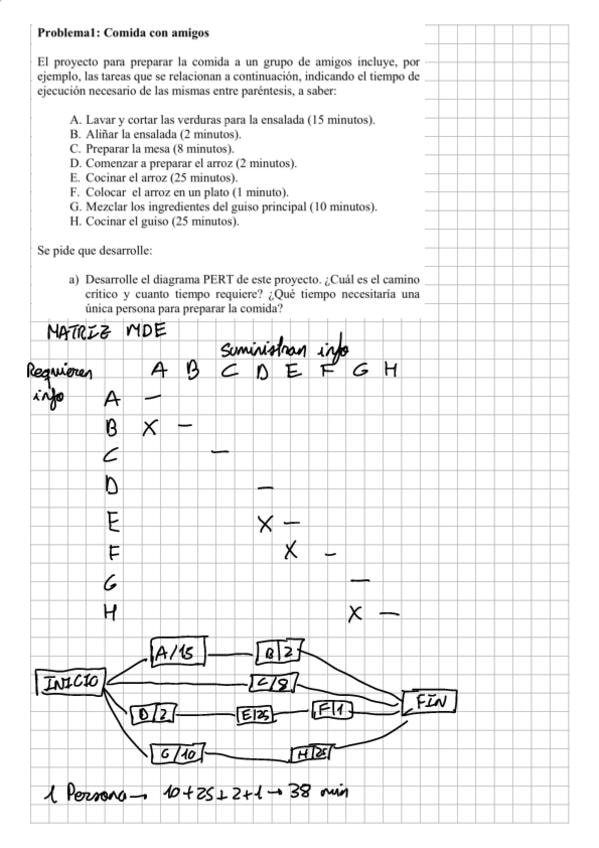 Problema1: Comida con amigos
El proyecto para preparar la comida a un grupo de amigos incluye, por
ejemplo, las tareas que se relacionan a continuación, indicando el tiempo de
ejecución necesario de las mismas entre paréntesis, a saber:
A. Lavar y cortar las verduras para la ensalada (15 minutos).
B. Aliñar la ensalada (2 minutos).
C. Preparar la mesa (8 minutos).
D. Comenzar a preparar el arroz (2 minutos).
E. Cocinar el arroz (25 minutos).
F. Colocar el arroz en un plato (1 minuto).
G. Mezclar los ingredientes del guiso principal (10 minutos).
H. Cocinar el guiso (25 minutos).
Se pide que desarrolle:
a) Desarrolle el diagrama PERT de este proyecto. ¿Cuál es el camino
crítico y cuanto tiempo requiere? ¿Qué tiempo necesitaría una
única persona para preparar la comida?
MATRIZ MDE
Suministran info
Requieren A B C D E F G H
info A —
B X —
C —
D —
E X —
F X —
G —
H X —
A/15 B|2
INICIO C/8
D|2 E|25 F|1 FIN
G/10 H|25
1 Persona → 10+25+2+1 → 38 min